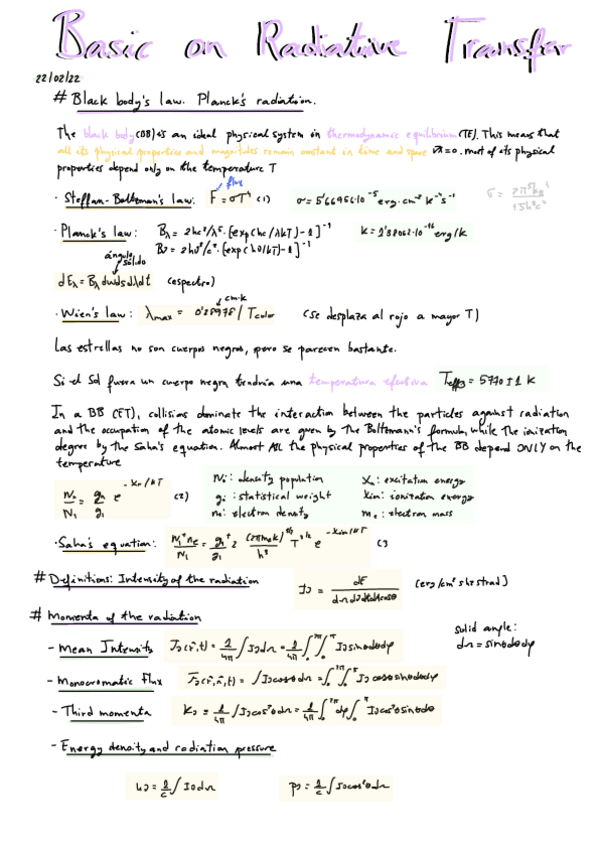 Basic on Radiative Transfer
22/02/22
# Black body's law. Planck's radiation.
The black body (BB) is an ideal physical system in thermodynamic equilibrium (TE). This means that
all its physical properties and magnitudes remain constant in time and space ∇λ=0. most of its physical
properties depend only on the temperature T
flux
· Steffan-Boltzmann's law: F=σT⁴ (1) σ=5'66956·10⁻⁵ erg·cm⁻² K⁻⁴ s⁻¹
· Planck's law: Bλ = 2hc²/λ⁵·[exp(hc/λkT)-1]⁻¹ k=1'38062·10⁻¹⁶ erg/K
Bν = 2hν³/c²·[exp(hν/kT)-1]⁻¹
ángulo sólido
dEλ = Bλ dω ds dλ dt (espectro)
cm·K
· Wien's law: λmax = 0'28978 / Tcolor (se desplaza al rojo a mayor T)
Las estrellas no son cuerpos negros, pero se parecen bastante.
Si el Sol fuera un cuerpo negro tendría una temperatura efectiva Teff⊙ = 5770±1 K
In a BB (ET), collisions dominate the interaction between the particles against radiation
and the occupation of the atomic levels are given by The Boltzmann's formula, while The ionization
degree by the Saha's equation. Almost All the physical properties of the BB depend ONLY on the
temperature
Ni: density population Xn: excitation energy
(2) gi: statistical weight Xion: ionization energy
ne: electron density me: electron mass
· Saha's equation:
# Definitions: Intensity of the radiation
# Momenta of the radiation
solid angle:
dΩ = sinθdθdφ
- Mean Intensity
- Monocromatic flux
- Third momenta
- Energy density and radiation pressure